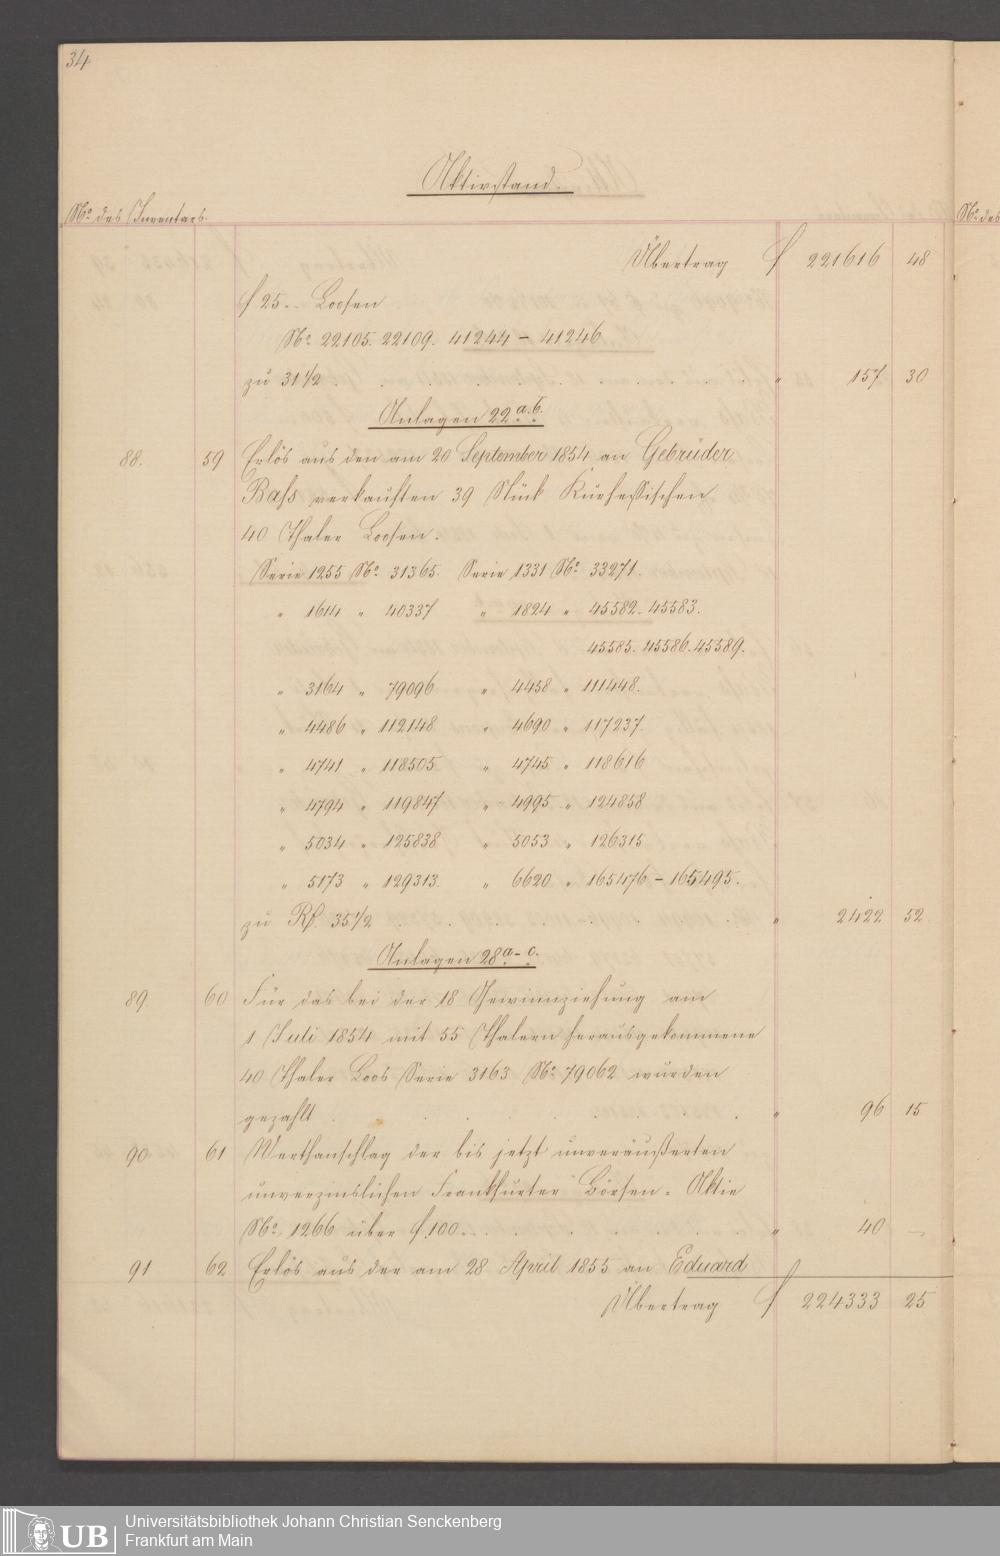 34.
Aktivstand.
No. des Inventars.
No. des
Übertrag f 221616 48
f 25.- Loosen
No. 22105. 22109. 41244 - 41246
zu 31 1/2 . . . . . . . . . " 157 30
Anlagen 22 a. b.
88. 59 Erlös aus den am 20 September 1854 an Gebrüder
Bass verkauften 39 Stück Kurhessischen
40 Thaler Loosen.
Serie 1255 No. 31365. Serie 1331 No. 33271.
" 1614 " 40337 " 1824 " 45582. 45583.
45585. 45586. 45589.
" 3164 " 79096 " 4458 " 111448.
" 4486 " 112148 " 4690 " 117237.
" 4741 " 118505 " 4745 " 118616
" 4794 " 119847 " 4995 " 124858
" 5034 " 125838 " 5053 " 126315
" 5173 " 129313. " 6620 " 165476 - 165495.
zu 35 1/2 . . . . . . . . " 2422 52
Anlagen 28 a - c.
89. 60 Für das bei der 18 Gewinnziehung am
1. Juli 1854 mit 55 Thalern herausgekommene
40 Thaler Loos Serie 3163 No. 79062 wurden
gezahlt . . . . . . . . " 96 15
90 61 Werthanschlag der bis jetzt unveräußerten
unverzinslichen Frankfurter Börsen-Aktie
No. 1266 über f. 100.- . . . . . . . " 40 —
91 62 Erlös aus der am 28 April 1855 an Eduard
Übertrag f 224333 25
UB
Universitätsbibliothek Johann Christian Senckenberg
Frankfurt am Main